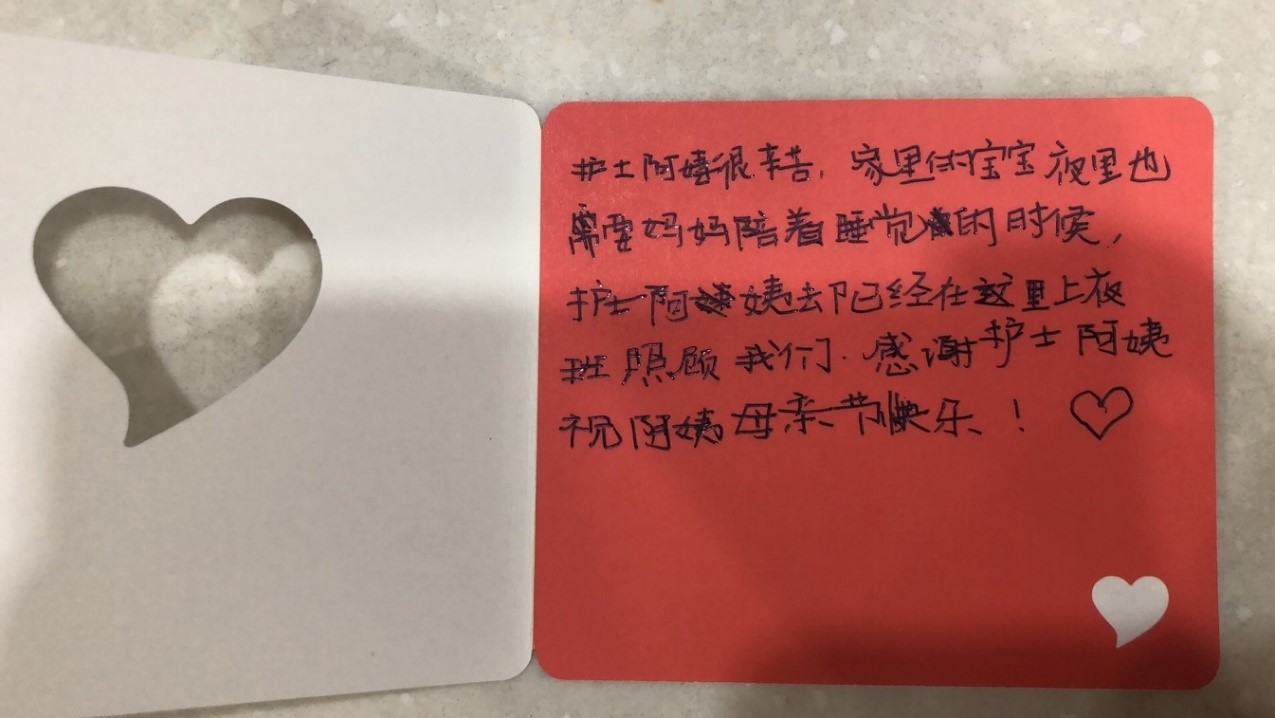 护士阿姨很辛苦,家里的宝宝夜里也
需要妈妈陪着睡觉的时候,
护士阿姨去已经在这里上夜
班照顾我们.感谢护士阿姨
祝阿姨母亲节快乐!